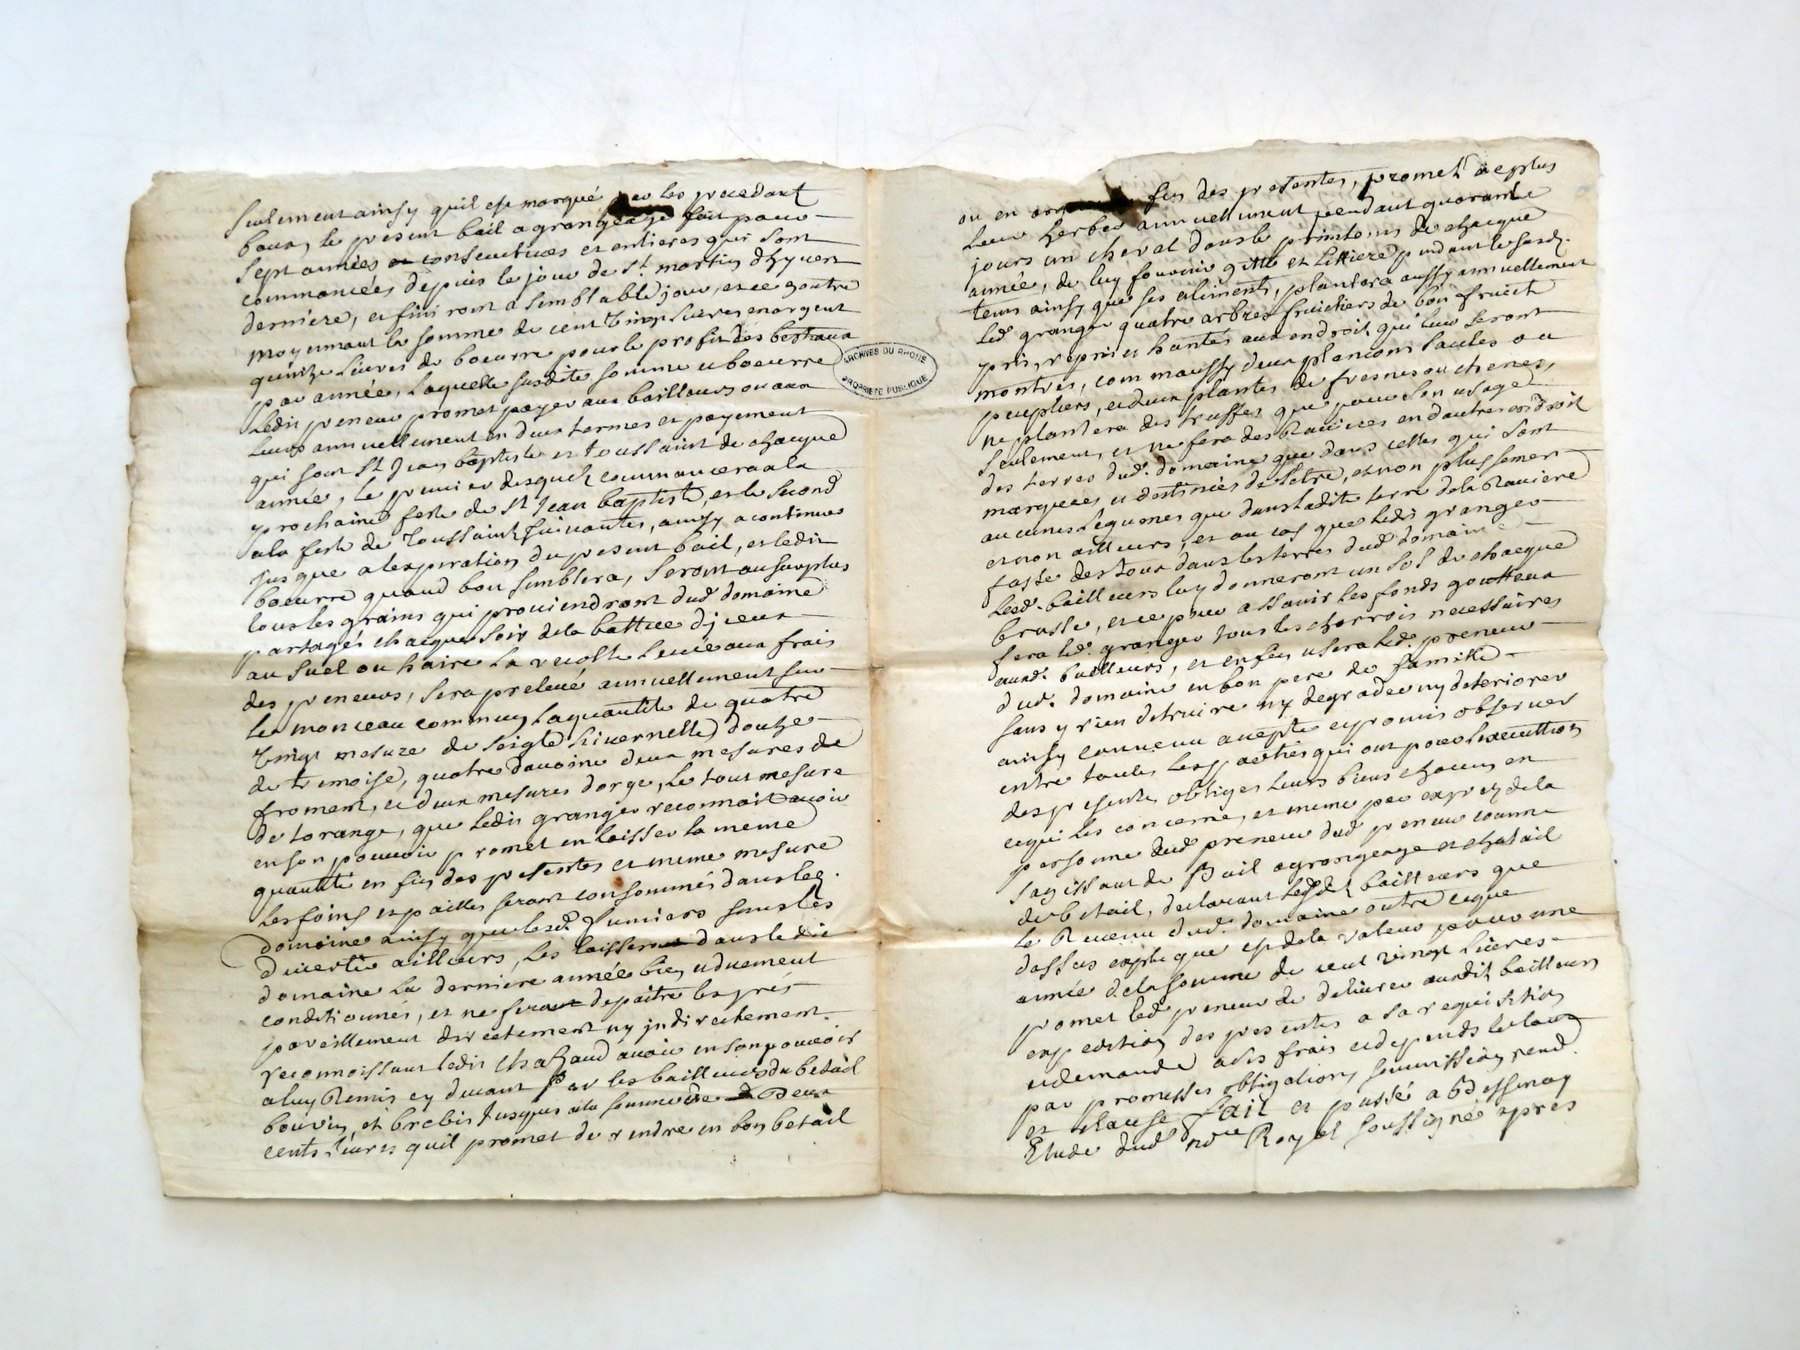 Seulement ainsy quil est marqué par les precedant
baux, le present bail a grangeage fait pour
sept années consecutives et entieres qui sont
commancées depuis le jour de St martin dhyver
derniere, et finiront a semblable jour, et ce outre
moyennant la somme de cent vingt livres en argent
quinze livres de boeurre pour le profit des bestiaux
par année, laquelle susdite somme et boeurre
ledit preneur promet payer aux bailleurs ou aux
leurs annuellement en deux termes et payement
qui sont St Jean baptiste et toussaint de chacque
année, le premier desquels commancera a la
prochaine feste de St Jean baptiste, et le second
a la feste de Toussaint suivantes, ainsy a continuer
jusque a lexpiration du present bail, et ledit
boeurre quand bon semblera, seront au surplus
tous les grains qui proviendront dud. domaine
partagés chacque soir de la battue diceux
au suel ou haire la recolte levée aux frais
des preneurs, sera prelevé annuellement sur
le monceau commun la quantité de quatre
vingt mesure de seigle hivernelle douze
de tremoise, quatre davoine deux mesures de
froment, et deux mesures dorge, le tout mesure
de Lorange, que ledit granger reconnoit avoir
en son pouvoir promet en laisser la meme
quantité en fin des presentes et meme mesure
Les foins et pailles seront consommés dans led.
domaine ainsy que lesd. fumiers sans les
divertir ailleurs, les laisseront dans ledit
domaine la derniere année bien et duement
conditionnés, et ne feront depaitre les prés
pareillement directement ny indirectement.
reconnoissant ledit Chazaud avoir en son pouvoir
a luy Remis cy devant par les bailleurs du betail
bouvin et brebis jusques a la somme de Deux
cents livres quil promet de rendre en bon betail
ou en argent fin des presentes, promet de plus
leur herber annuellement pendant quarante
jours un cheval dans le printems de chacque
année, de luy fournir gitte et littiere pendant le susd.
tems ainsy que ses aliments, plantera aussy annuellement
led. granger quatre arbres fruictiers de bon fruict
pris, repris et hantés aux endroit qui leur seront
montrés, comm aussy deux plancons saules ou
peupliers, et deux plantes de fresnes ou chenes,
ne plantera des truffes que pour son usage
seulement, et ne fera des Ravieres en dautres endroit
des terres dud. domaine que dans celles qui sont
marquées et destinées de letre, et non plus semer
aucunes legumes que dans ladite terre de la Raviere
et non ailleurs, et au cas que ledit granger
fasse des doux dans les terres dud. domaine
lesd. bailleurs luy donneront un sol de chacque
brasse, et ce pour assanir les fonds goutteux
fera led. granger tous les charrois necessaires
auxd. bailleurs, et en fin usera led. preneur
dud. domaine en bon pere de famille
sans y rien detruire ny degrader ny deteriorer
ainsy convenu accepté et promis observer
entre toutes les parties qui ont pour lexecution
des presentes obliges leurs biens chacun en
ce qui les concerne, et meme par exprez de la
personne dud. preneur dud. preneur comme
sagissant de Bail a grangeage et chatail
de betail, declarant lesdits bailleurs que
le Revenu dud. domaine outre ce que
dessus explique est de la valeur pour une
année de la somme de cent vingt livres
promet led. preneur de delivrer auxdits bailleurs
expedition des presentes a sa requisition
et demande a ses frais et depends le tout
par promesses obligations soumission rend.
et clause fait et passé a Bessenay
Etude dud. nore Royal soussigné apres
ARCHIVES DU RHONE
PROPRIETE PUBLIQUE